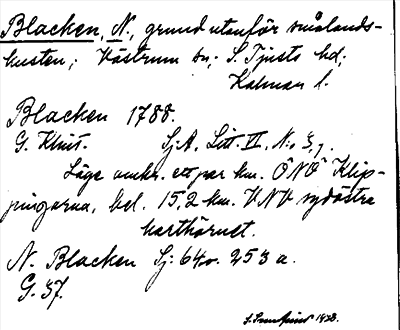 Blacken, N., grund utanför smålands-
kusten; Västrum sn; S. Tjusts hd;
Kalmar l.
Blacken 1788.
G. Klint. Sj.A. Litt. II, N:o 3,7.
Läge omkr. ett par km. ÖNÖ Klip-
pingarna, bel. 15,2 km. VNV sydöstra
karthörnet.
N. Blacken Sj: 64o. 253 a.
G. 37.
1938.